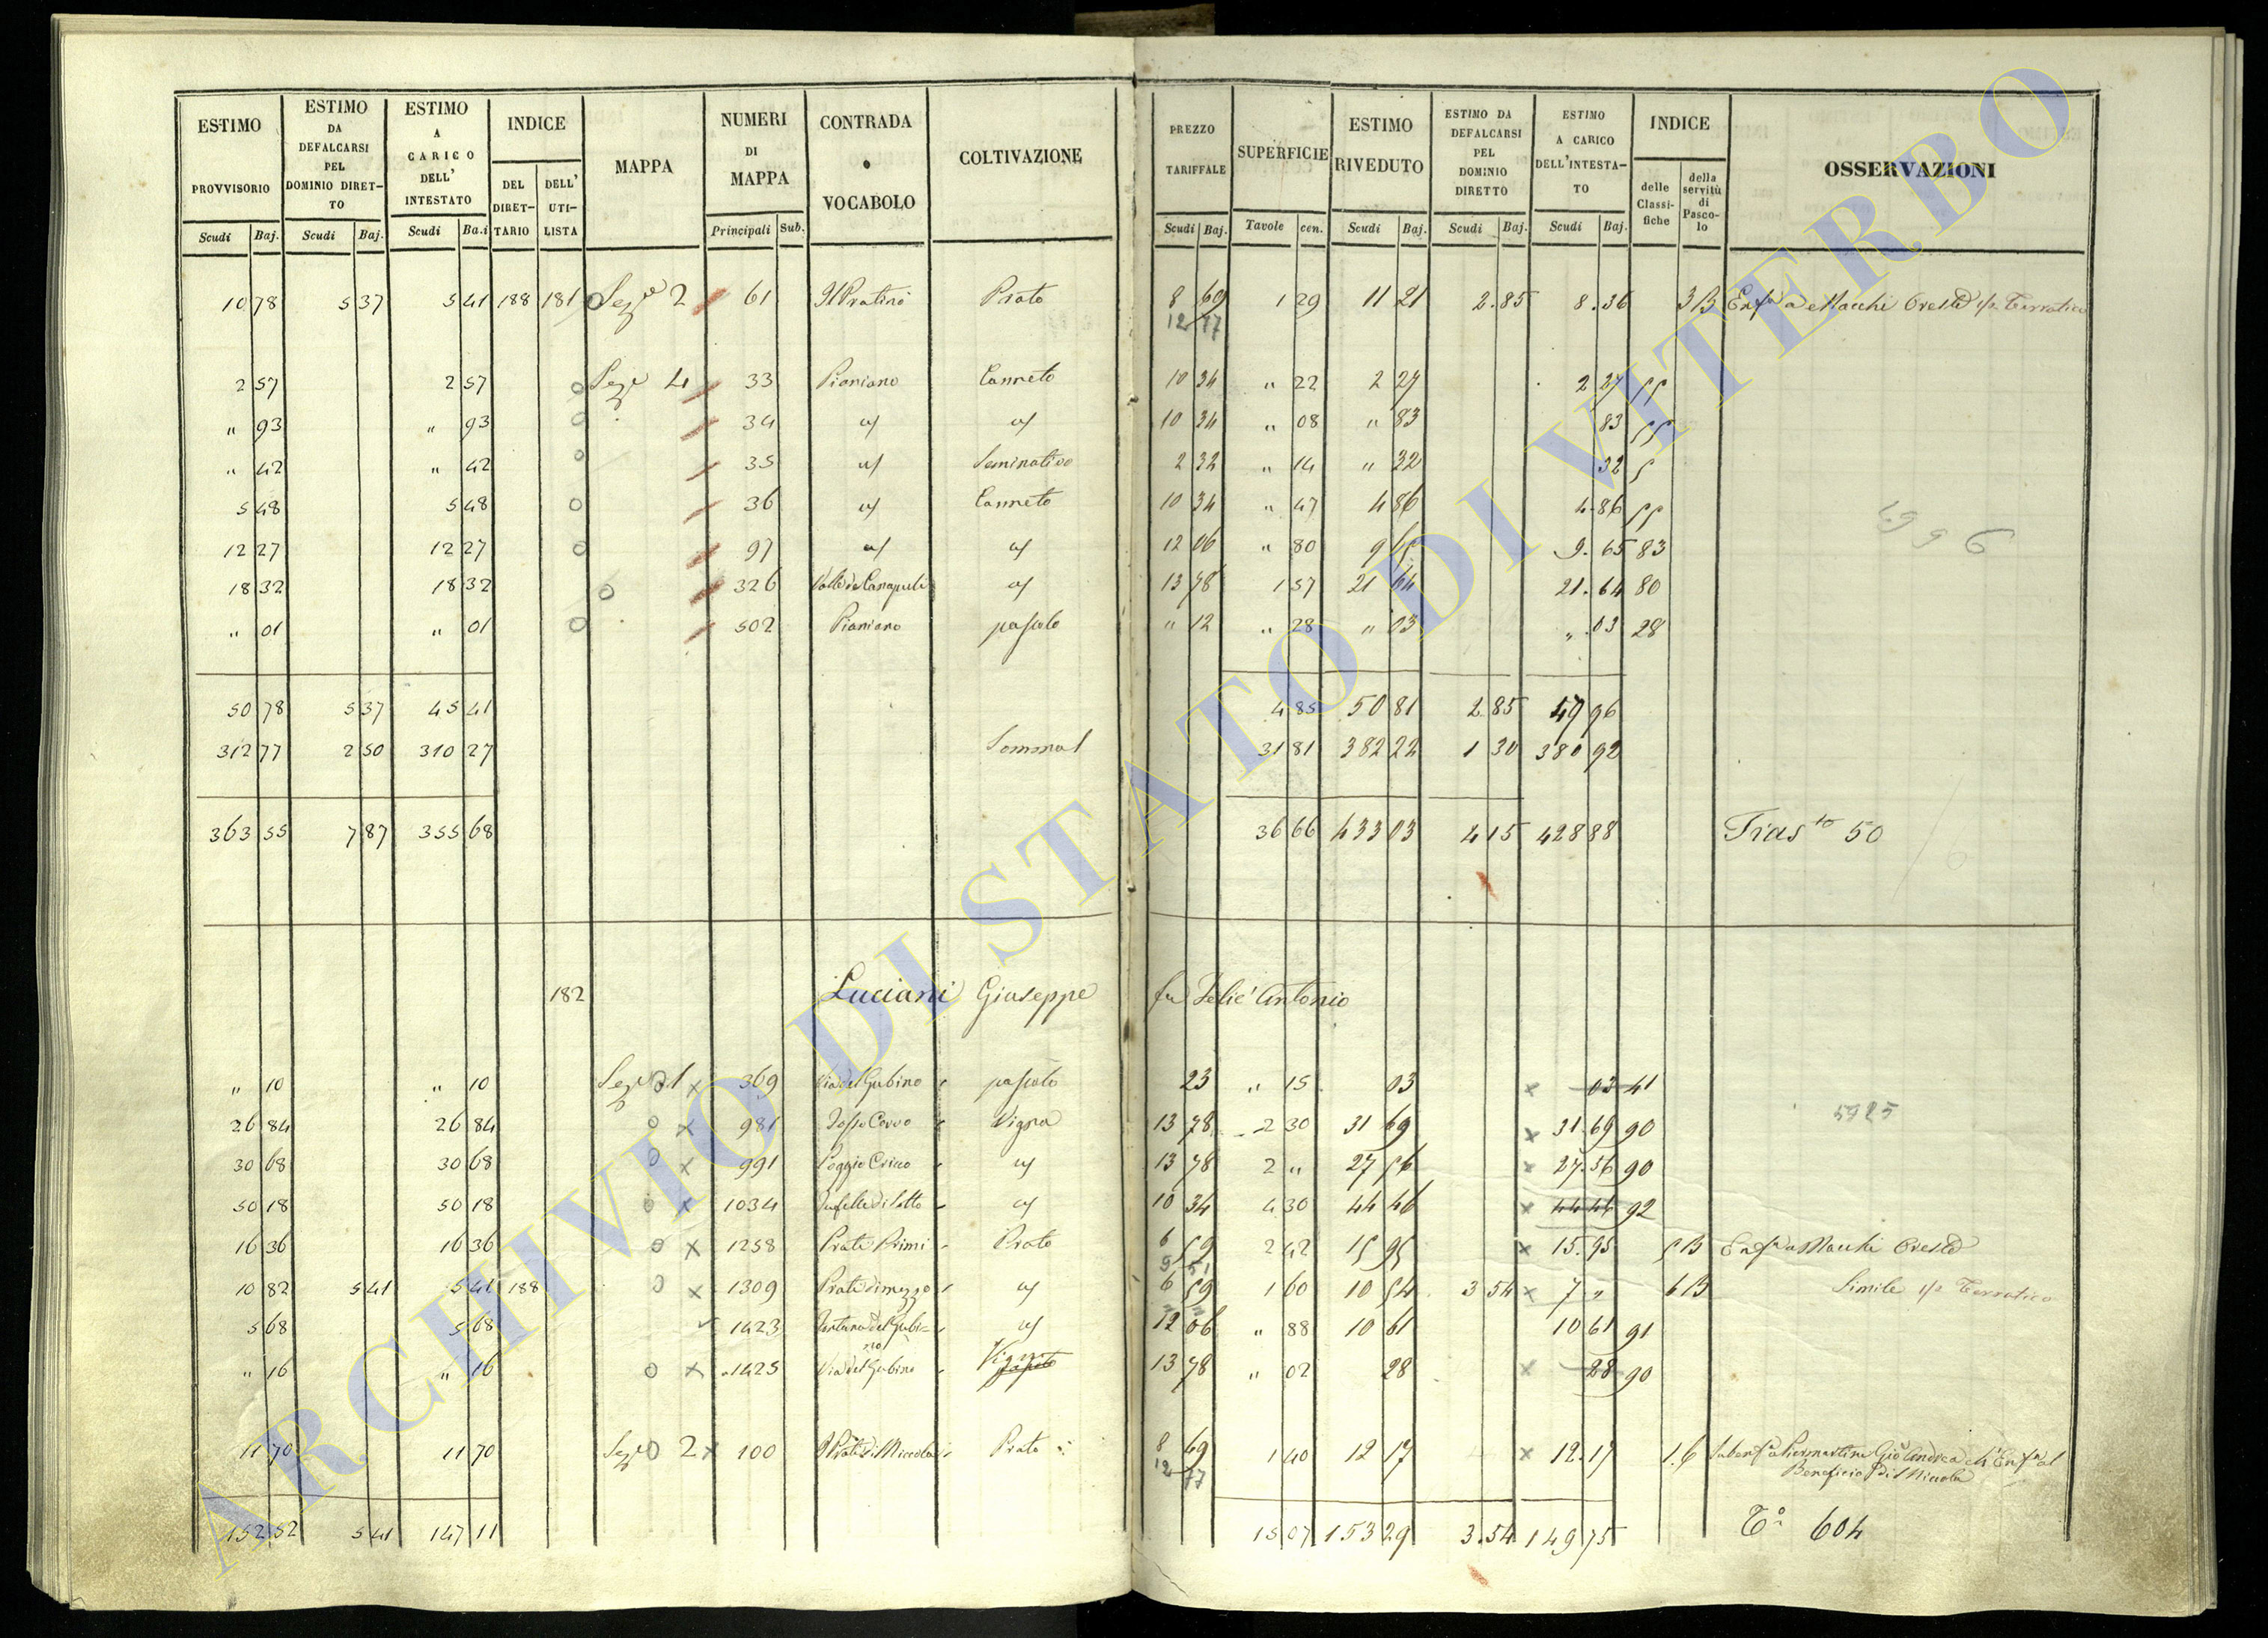 ESTIMO PROVVISORIO | ESTIMO DA DEFALCARSI PEL DOMINIO DIRET-TO | ESTIMO A CARICO DELL' INTESTATO | INDICE | MAPPA | NUMERI DI MAPPA | CONTRADA o VOCABOLO | COLTIVAZIONE | PREZZO TARIFFALE | SUPERFICIE | ESTIMO RIVEDUTO | ESTIMO DA DEFALCARSI PEL DOMINIO DIRETTO | ESTIMO A CARICO DELL'INTESTA-TO | INDICE | OSSERVAZIONI
Scudi | Baj. | Scudi | Baj. | Scudi | Ba.i | DEL DIRET-TARIO | DELL' UTI-LISTA | Principali | Sub. | Scudi | Baj. | Tavole | cen. | Scudi | Baj. | Scudi | Baj. | Scudi | Baj. | delle Classi-fiche | della servitù di Pasco-lo
10 78 | 5 37 | 5 41 | 188 | 181 | Sez.e 2 | 61 | Il Pratino | Prato | 8 69 | 1 29 | 11 21 | 2.85 | 8.36 | 3 B | a Macchi Oreste
12 77
2 57 | 2 57 | Sez.e 4 | 33 | Pianiano | Canneto | 10 34 | " 22 | 2 27 | 2 27
" 93 | " 93 | 34 | 10 34 | " 08 | " 83 | 83
" 42 | " 42 | 35 | Seminativo | 2 32 | " 14 | " 32 | 32
5 48 | 5 48 | 36 | Canneto | 10 34 | " 47 | 4 86 | 4.86
12 27 | 12 27 | 97 | 12 06 | " 80 | 9 65 | 9.65 | 83
18 32 | 18 32 | 326 | 13 78 | 1 57 | 21 64 | 21.64 | 80
" 01 | " 01 | 502 | Pianiano | pascolo | " 12 | " 28 | " 03 | " 03 | 28
50 78 | 5 37 | 45 41 | 4 85 | 50 81 | 2.85 | 47 96
312 77 | 2 50 | 310 27 | 31 81 | 382 22 | 1 30 | 380 92
363 55 | 7 87 | 355 68 | 36 66 | 433 03 | 4 15 | 428 88 | 50
182 | Luciani Giuseppe fu Antonio
" 10 | " 10 | Sez.e 1 | 369 | Via del Gubino | pascolo | 23 | " 15 | 03 | 03 | 41
5725
26 84 | 26 84 | 981 | Fosso Cervo | Vigna | 13 78 | 2 30 | 31 69 | 31.69 | 90
30 68 | 30 68 | 991 | Poggio | 13 78 | 2 " | 27 56 | 27.56 | 90
50 18 | 50 18 | 1034 | di Sotto | 10 34 | 4 30 | 44 46 | 44 46 | 92
16 36 | 16 36 | 1258 | Prati Primi | Prato | 6 59 | 2 42 | 15 95 | 15.95 | 5 B | a Macchi Oreste
10 82 | 5 41 | 5 41 | 188 | 1309 | Prati di mezzo | 6 59 | 1 60 | 10 54 | 3 54 | 7 " | 6 B | Simile
5 68 | 5 68 | 1423 | 12 06 | " 88 | 10 61 | 10 61 | 91
" 16 | " 16 | 1425 | Via del Gubino | Vigna | 13 78 | " 02 | 28 | 28 | 90
11 70 | 11 70 | Sez.e 2 | 100 | Prato | 8 69 | 1 40 | 12 17 | 12.17 | 1.6
12 77 | Beneficio Di
152 52 | 5 41 | 147 11 | 15 07 | 153 29 | 3.54 | 149 75 | 604
ARCHIVIO DI STATO DI VITERBO